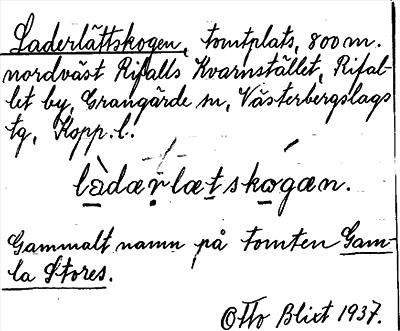 Laderlättskogen, tomtplats, 800 m.
nordväst Rifalls Kvarnstället, Rifal-
let by, Grangärde sn, Västerbergslags
tg, Kopp. l.
là̱dæṛlæṯsko̱gæn.
Gammalt namn på tomten Gam-
la Stores.
Otto Blixt 1937.